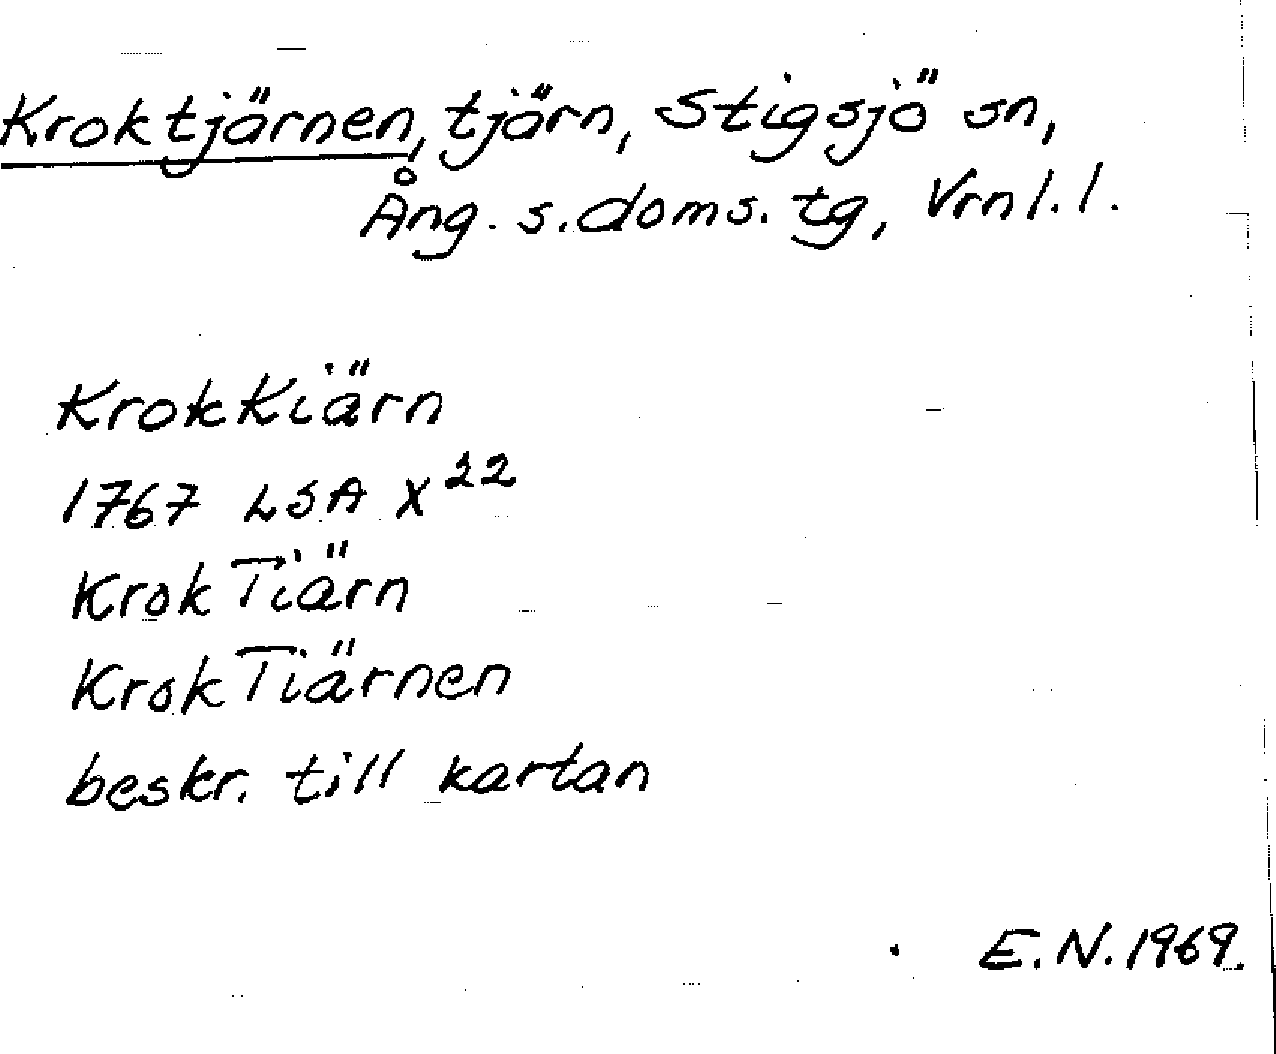 Kroktjärnen, tjärn, Stigsjö sn,
Ång. s. doms. tg, Vrnl. l.
KrokKiärn
1767 LSA X 22
Krok Tiärn
Krok Tiärnen
beskr. till kartan
E.N. 1969.